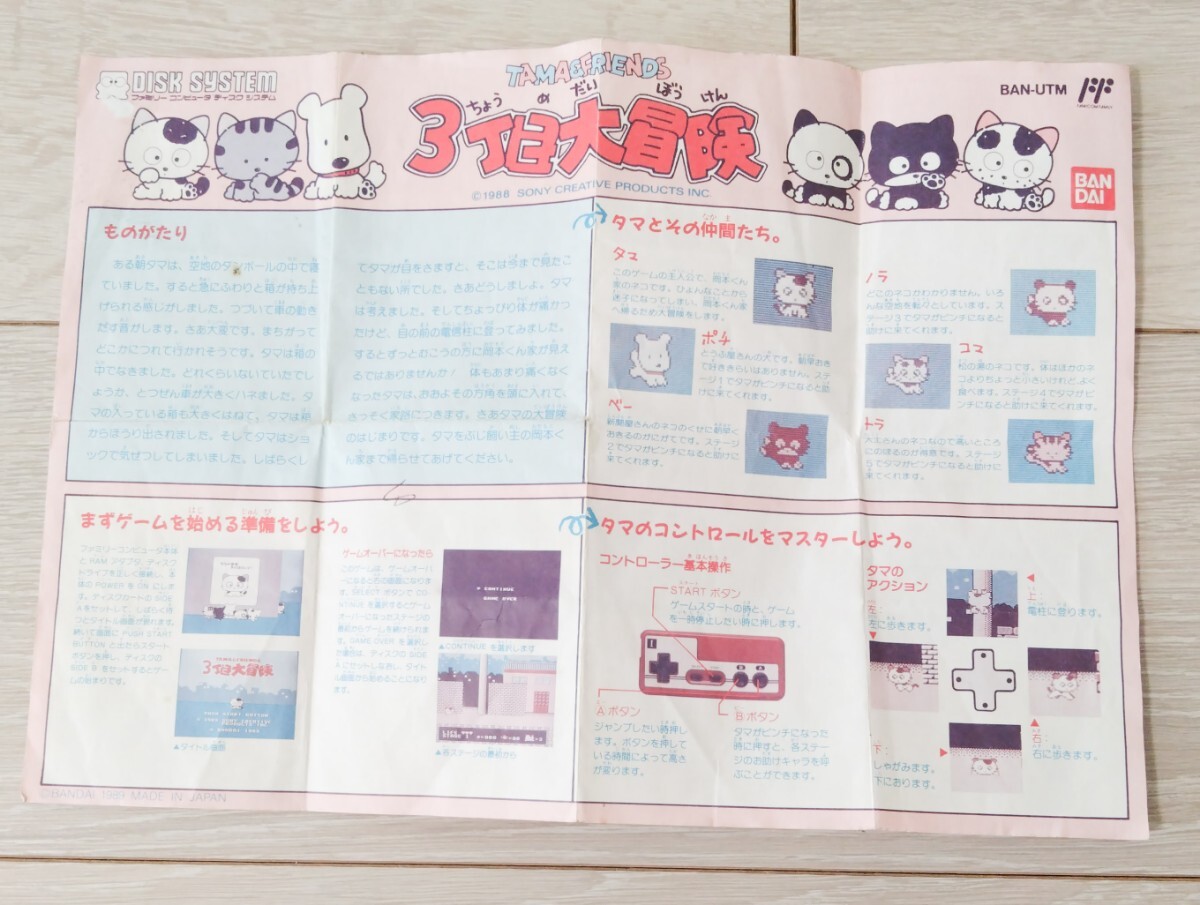 DISK SYSTEM
ファミリー コンピュータ ディスク システム
TAMA&FRIENDS
ちょう め だい ぼう けん
3丁目大冒険
©1988 SONY CREATIVE PRODUCTS INC.
BAN-UTM
BAN
DAI
ものがたり
ある朝タマは、空地のダンボールの中で寝
ていました。すると急にふわりと箱が持ち上
げられる感じがしました。つづいて車の動き
だす音がします。さあ大変です。まちがって
どこかにつれて行かれそうです。タマは箱の
中でなきました。どれくらいないていたでし
ょうか、とつぜん車が大きくハネました。タ
マの入っている箱も大きくはねて、タマは箱
からほうり出されました。そしてタマはショ
ックで気ぜつしてしまいました。しばらくし
てタマが目をさますと、そこは今まで見たこ
ともない所でした。さあどうしましょ。タマ
は考えました。そしてちょっぴり体が痛かっ
たけど、目の前の電信柱に登ってみました。
するとずっとむこうの方に岡本くん家が見え
るではありませんか! 体もあまり痛くなく
なったタマは、おおよその方角を頭に入れて、
さっそく家路につきます。さあタマの大冒険
のはじまりです。タマをぶじ飼い主の岡本く
ん家まで帰らせてあげてください。
タマとその仲間たち。
タマ
このゲームの主人公で、岡本くん
家のネコです。ひょんなことから
迷子になってしまい、岡本くん家
へ帰るため大冒険をします。
ポチ
とうふ屋さんの犬です。朝早おき
で好ききらいはありません。ステ
ージ1でタマがピンチになると助
けに来てくれます。
ベー
新聞屋さんのネコのくせに朝早く
おきるのがにがてです。ステージ
2でタマがピンチになると助けに
来てくれます。
ノラ
どこのネコかわかりません。いろ
んな空地を転々としています。ス
テージ3でタマがピンチになると
助けに来てくれます。
コマ
松の湯のネコです。体はほかのネ
コよりちょっと小さいけれど、よく
食べます。ステージ4でタマがピ
ンチになると助けに来てくれます。
トラ
大工さんのネコなので高いところ
にのぼるのが得意です。ステージ
5でタマがピンチになると助けに
来てくれます。
まずゲームを始める準備をしよう。
ファミリーコンピュータ本体
と RAM アダプタ、ディスク
ドライブを正しく接続し、本
体の POWER を ON にしま
す。ディスクカードの SIDE
A をセットして、しばらく待
つとタイトル画面が現れます。
続いて画面に PUSH START
BUTTON と出たらスタート
ボタンを押し、ディスクの
SIDE B をセットするとゲー
ムの始まりです。
▲タイトル画面
ゲームオーバーになったら
▲CONTINUE を選択します
▲各ステージの最初から
CONTINUE
GAME OVER
タマのコントロールをマスターしよう。
コントローラー基本操作
START ボタン
ゲームスタートの時と、ゲーム
を一時停止したい時に押します。
A ボタン
ジャンプしたい時押し
ます。ボタンを押して
いる時間によって高さ
が変ります。
B ボタン
タマがピンチになった
時に押すと、各ステー
ジのお助けキャラを呼
ぶことができます。
タマの
アクション
左:
左に歩きます。
上:
電柱に登ります。
下:
しゃがみます。
下におります。
右:
右に歩きます。
©BANDAI 1989 MADE IN JAPAN